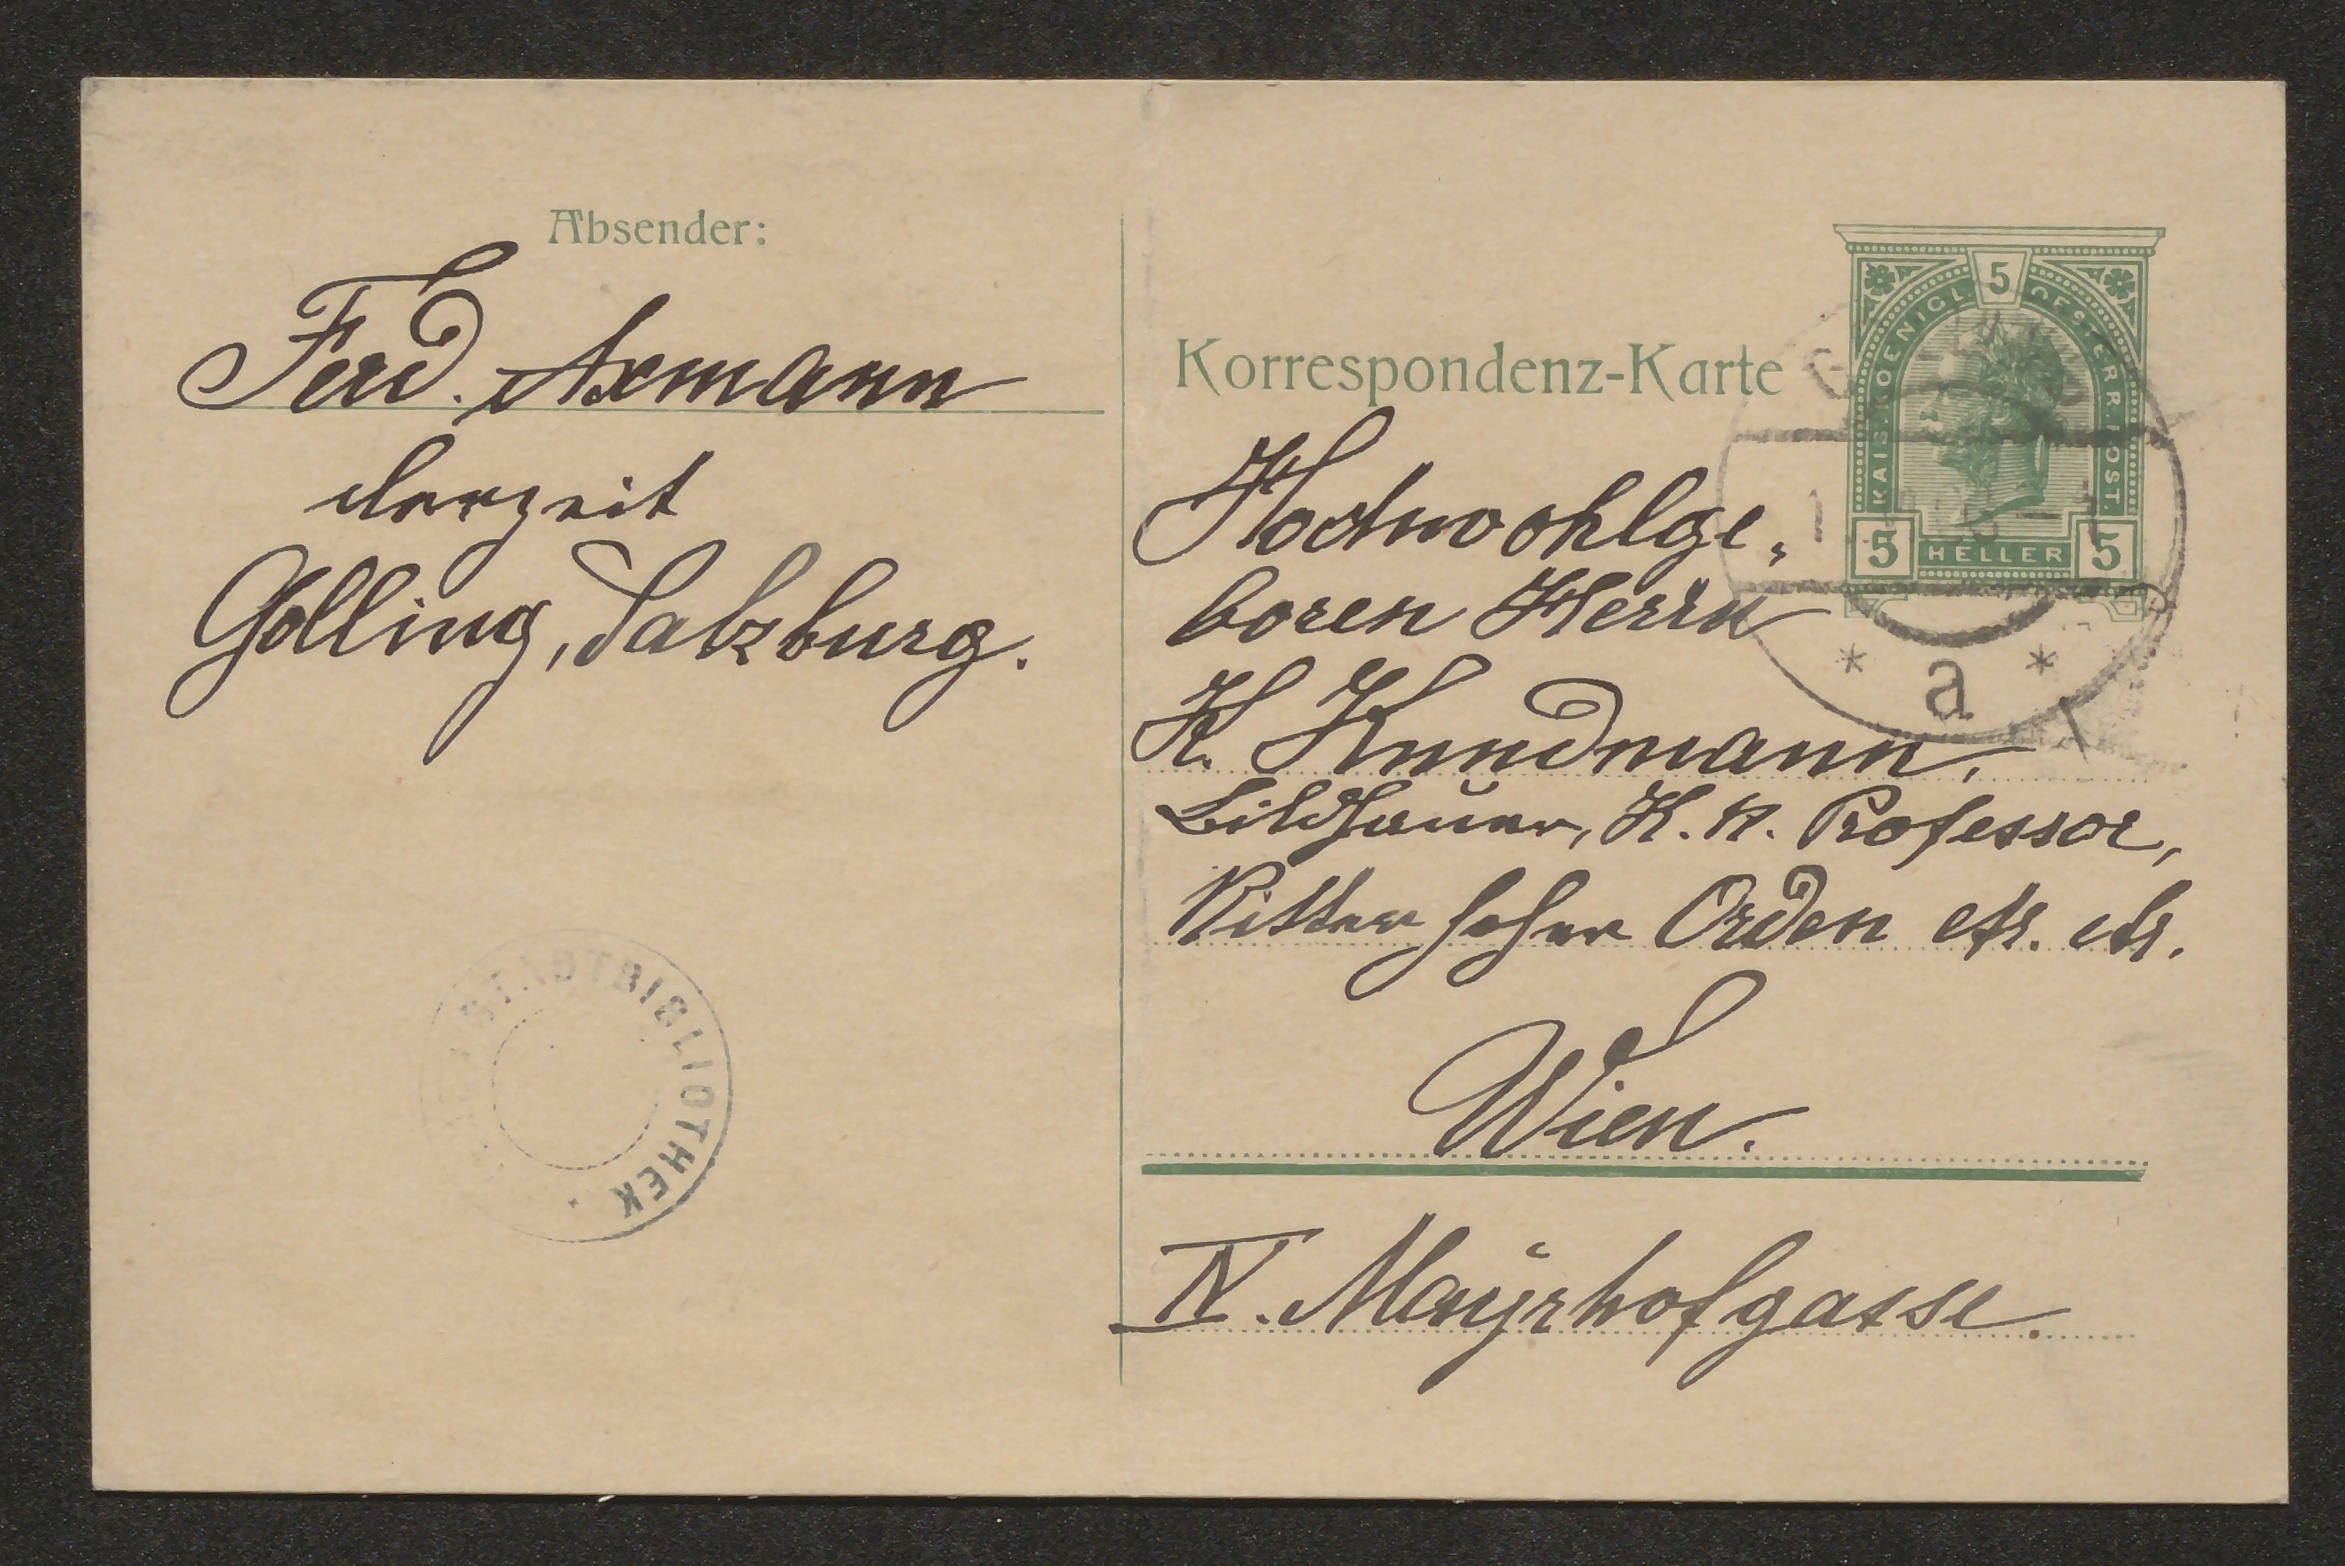 Absender:
Ferd. Axmann
derzeit
Golling, Salzburg.
STADTBIBLIOTHEK
Korrespondenz-Karte
5
KAIS. KOENIGL. OESTERR. POST.
5 HELLER 5
* a *
Hochwohlge„
boren Herrn
K. Kundmann,
Bildhauer, K. K. Professor,
Ritter hoher Orden etc. etc.
Wien.
IV. Mayrhofgasse.